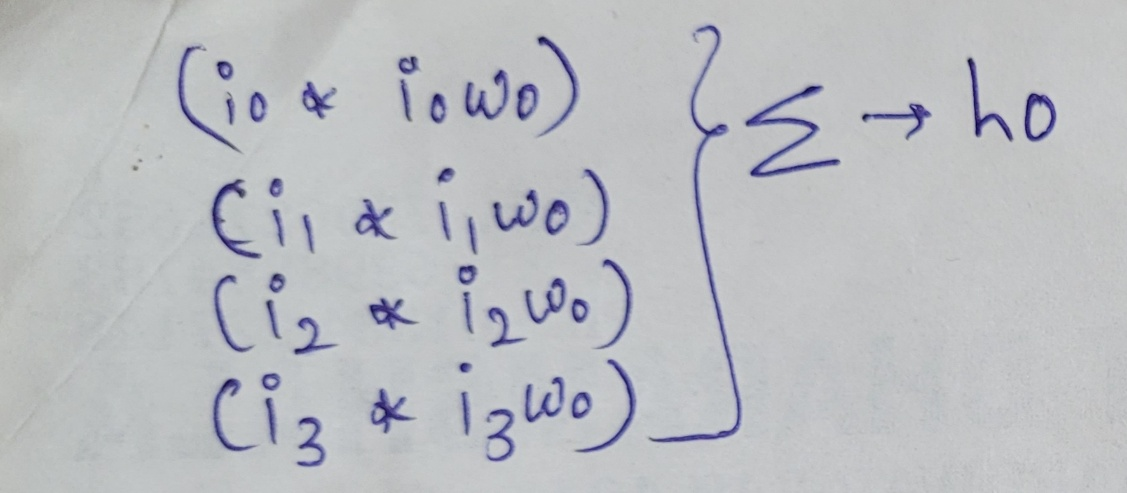 (i0 * i0w0) } Σ → h0
(i1 * i1w0)
(i2 * i2w0)
(i3 * i3w0)